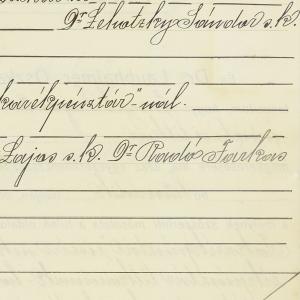 Dr Zehotzky Sándor s.k.
karékpénztár"-nál.
Lajos s.k. Dr Radó Farkas